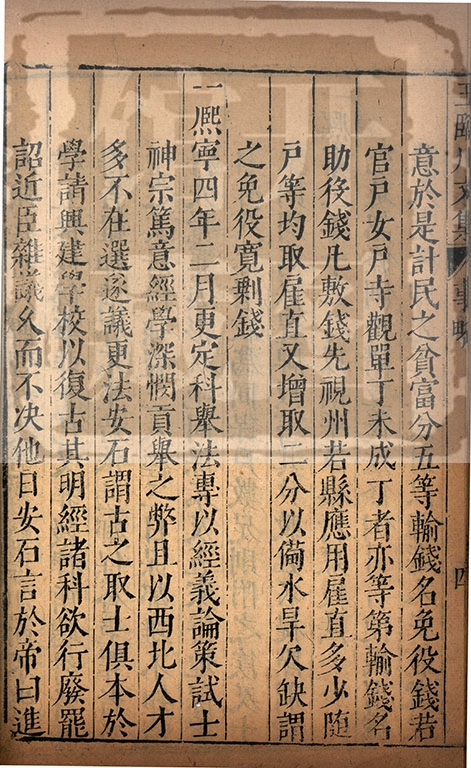 意於是計民之貧富分五等輸錢名免役錢若
官戶女戶寺觀單丁未成丁者亦等第輸錢名
助役錢凡敷錢先視州若縣應用雇直多少隨
戶等均取雇直又增取二分以備水旱欠缺謂
之免役寬剩錢
一熙寧四年二月更定科舉法專以經義論策試士
神宗篤意經學深憫貢舉之弊且以西北人才
多不在選遂議更法安石謂古之取士俱本於
學請興建學校以復古其明經諸科欲行廢罷
詔近臣雜議久而不决他日安石言於帝曰進